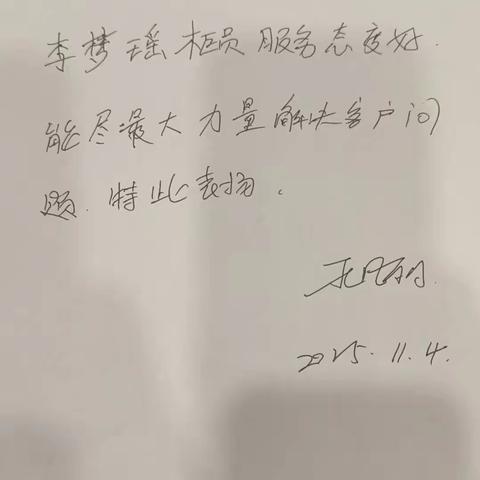 李梦瑶柜员服务态度好.
能尽最大力量解决客户问
题.特此表扬.
2025.11.4.